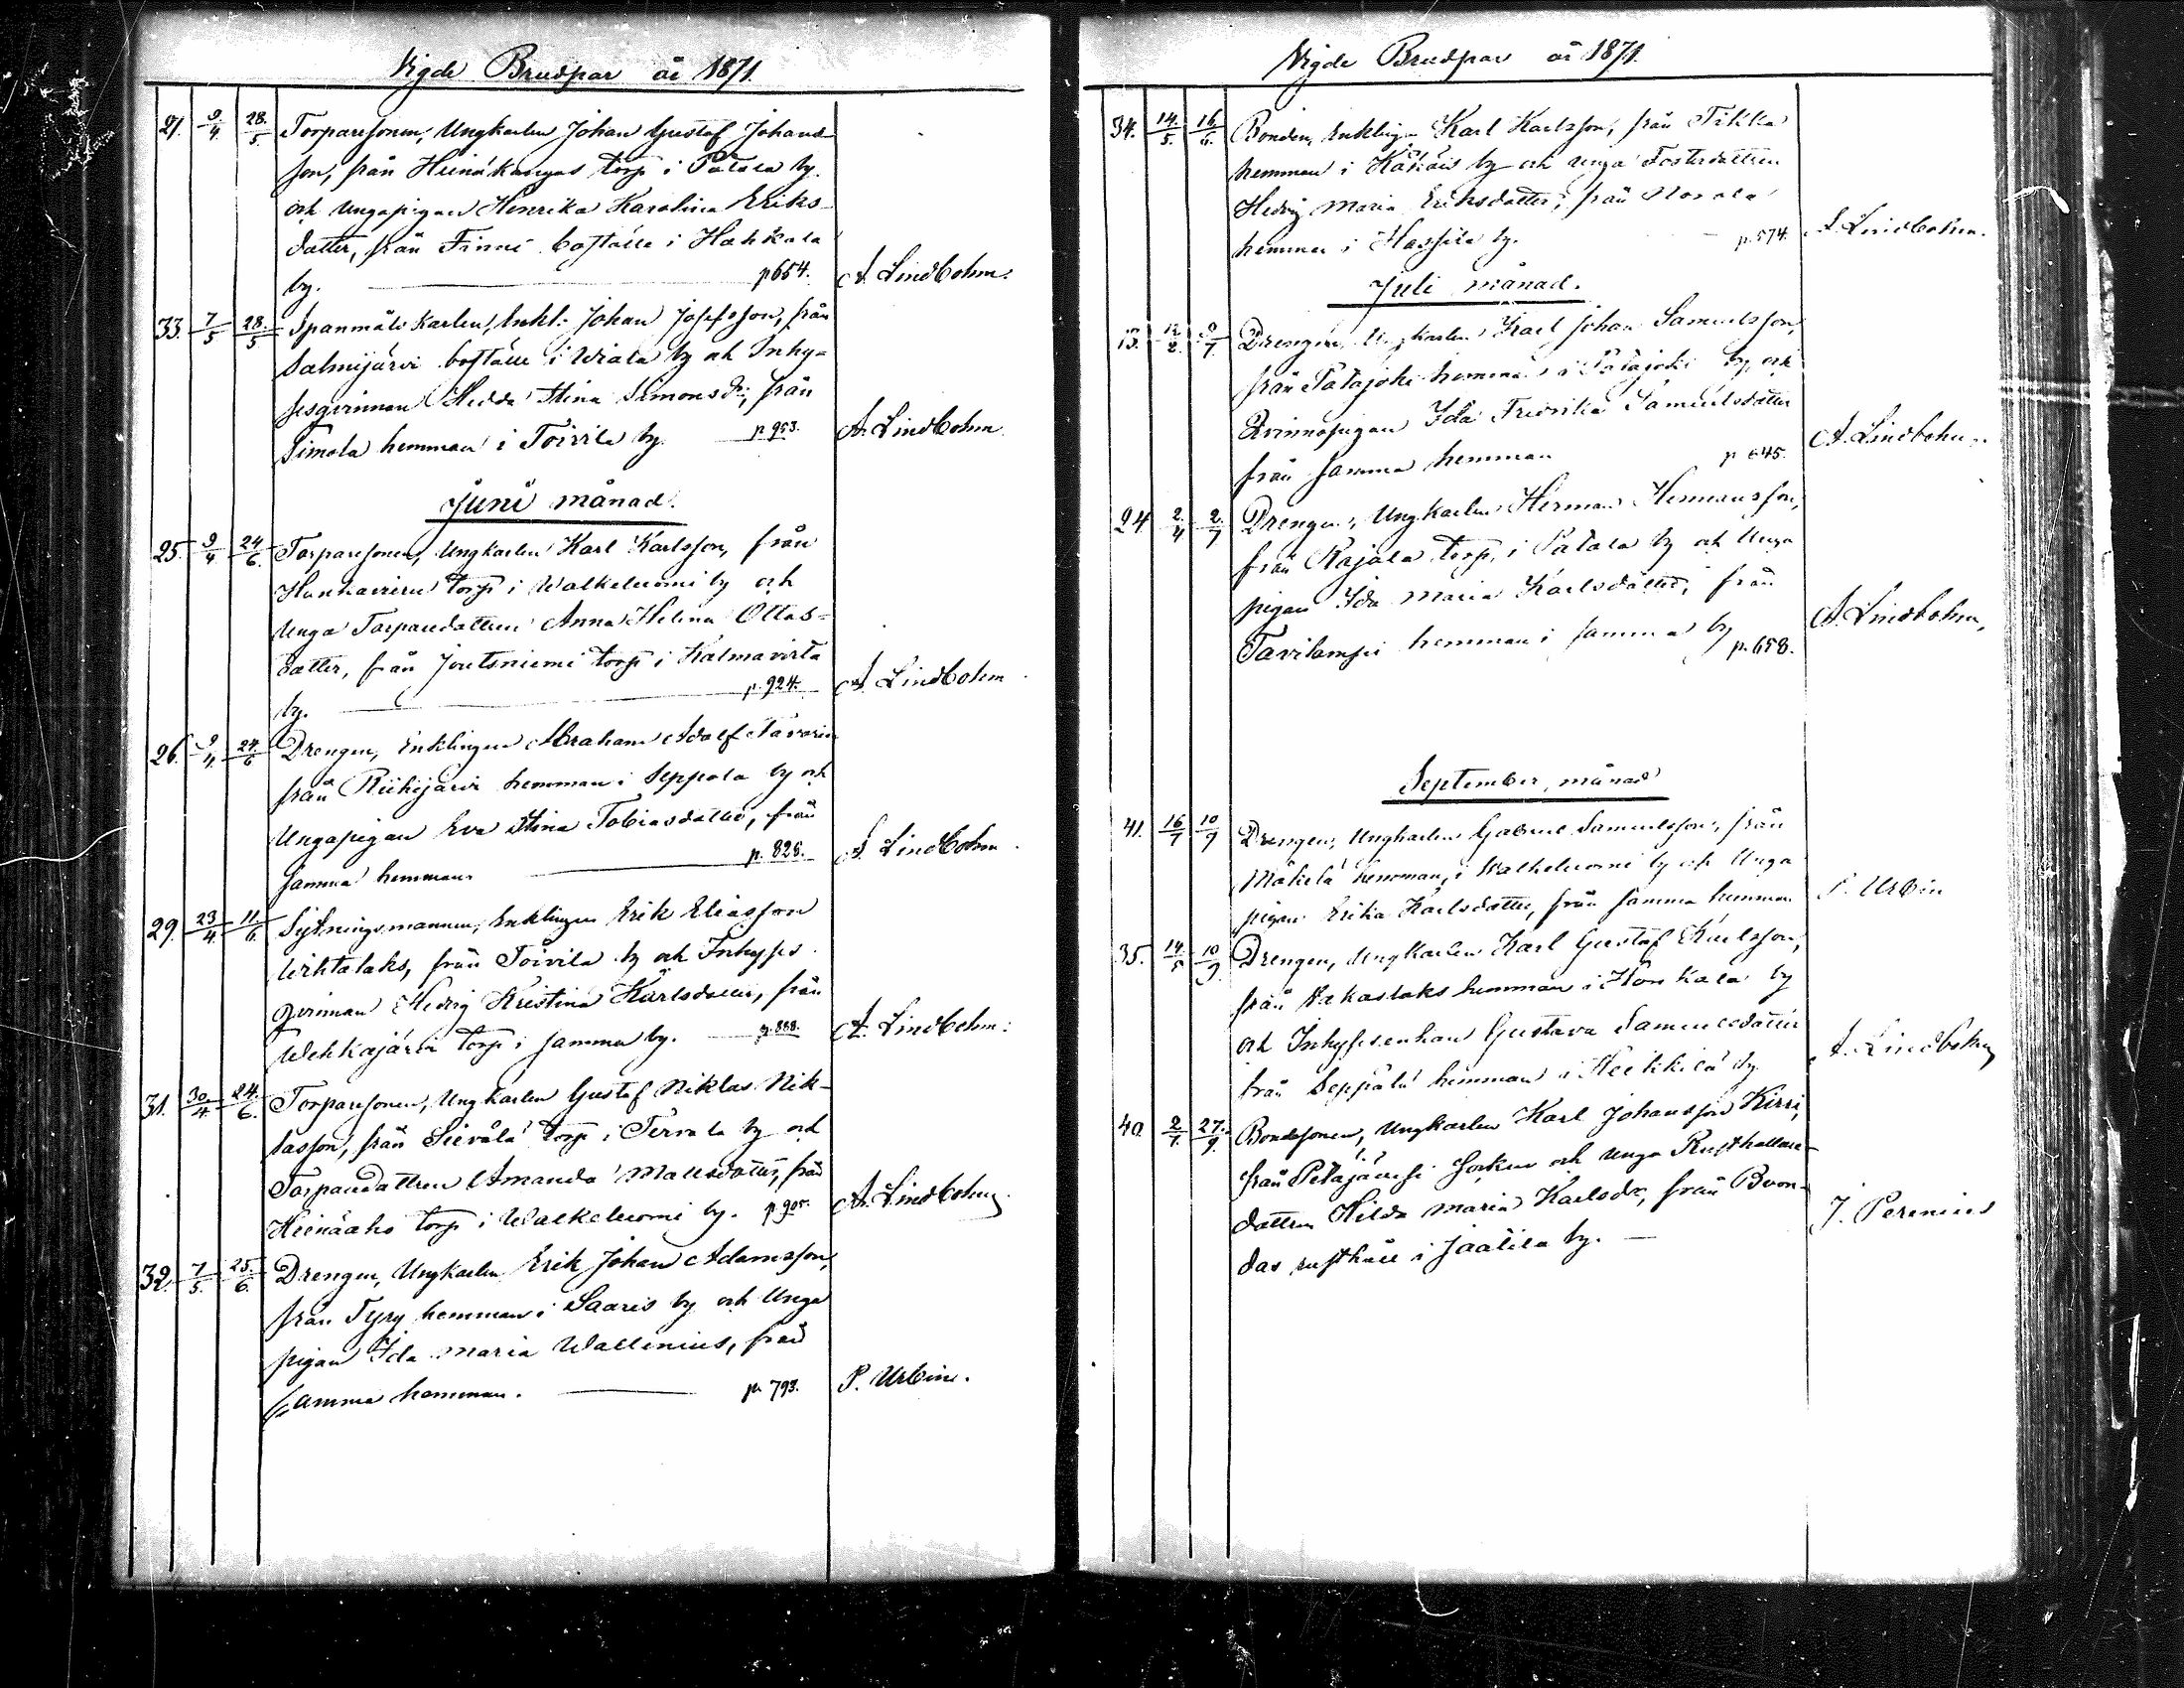 Vigde Brudpar år 1871.
21. 9/4. 28./5. Torparesonen, Ungkarlen Johan Gustaf Johans-
son, från Heinäkangas torp i Patala by.
och Ungapigan Henrika Karolina Eriks-
datter, från Finni boställe i Hahkala
by. p 654. A. Lindbohm.
33. 7/5 28./5 Spanmåls Karlen, Enkl. Johan Josefsson, från
Salmijärvi boställe i Wiala by och Inhy-
sesqvinnan Hedda Stina Simonsdr, från
Simola hemman i Toivila by p 953. A. Lindbohm.
Juni månad.
25. 9/4 24/6. Torparesonen, Ungkarlen Karl Karlsson, från
torp i Walkeluomi by och
Unga Torparedattren Anna Helena Ottas-
datter, från Joutsniemi torp i Kalmavirta
by. p. 924. A. Lindbohm
26. 9/4. 24./6 Drengen, Enklingen Abraham Adolf Tavarin
från Riihijärvi hemman i Seppola by och
Ungapigan Eva Stina Tobiasdatter, från
samma hemman p. 828. A. Lindbohm.
29. 23/4. 11./6 Sytningsmannen, Enklingen Erik Eliasson
Wihtalaks, från Toivila by och Inhyses
qvinnan Hedvig Kristina Karlsdatter, från
Wehkajärvi torp i samma by. p. 888. A. Lindbohm.
31. 30/4. 24./6. Torparesonen, Ungkarlen Gustaf Niklas Nik-
lasson, från Sievälä torp i Tervala by och
Torparedattren Amanda Mattsdatter, från
Heinäaho torp i Walkeluomi by. p. 905. A. Lindbohm.
32. 7/5. 25./6. Drengen, Ungkarlen Erik Johan Adamsson,
från Tyry hemman i Saaris by och Unga
pigan Ida Maria Wallenius, från
samma hemman. p. 793. P. Urbin.
Vigde Brudpar år 1871.
34. 14./5. 16./6. Bonden, Enklingen Karl Karlsson, från Tikka
hemman i by och unga Fosterdattren
Hedvig Maria Eriksdatter, från
hemman i Hassila by. p. 574. A. Lindbohm.
Juli månad.
13. 12/2. 9/7. Drengen, Ungkarlen Karl Johan Samuelsson,
från Patajoki hemman i Patajoki by, och
Qvinnopigan Ida Fredrika Samuelsdatter
från samma hemman p 645. A. Lindbohm.
24 2./4 2./7 Drengen, Ungkarlen Herman Hermansson,
från Rajala torp i Patala by och Unga
pigan Ida Maria Karlsdatter, från
Tavilampi hemman i samma by p. 658. A. Lindbohm.
September månad
41. 16/7 10/9 Drengen, Ungkarlen Gabriel Samuelsson, från
Mäkelä hemman, i Walkeluomi by och Unga
pigan Erika Karlsdatter, från samma hemman P. Urbin
35. 14./5 10/9 Drengen, Ungkarlen Karl Gustaf Karlsson,
från hemman i Honkala by
och Inhysesenkan Gustava Samuelsdatter
från Seppälä hemman i Heikkilä by. A. Lindbohm
40. 2/7. 27./9. Bondesonen, Ungkarlen Karl Johansson Kirri,
från Petäjävesi socken och Unga Rusthållare-
dattren Hilda Maria Karlsdr, från Buon-
das rusthåll i Jaatila by. J. Perenius